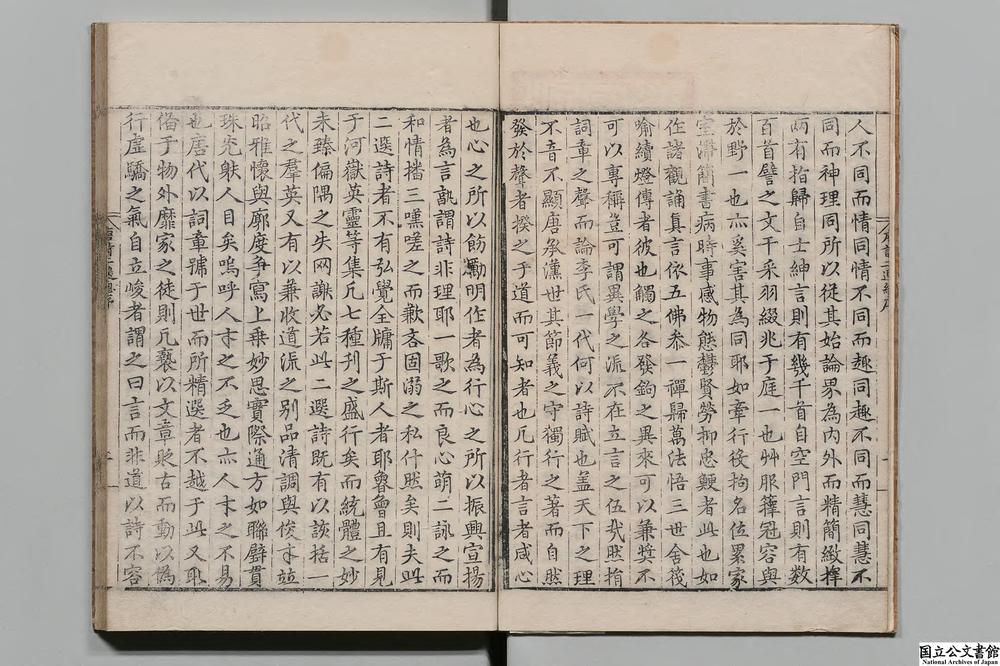 人不同而情同情不同而趣同趣不同而慧同慧不
同而神理同所以從其始論界為內外而精簡緻擇
兩有指歸自士紳言則有幾千首自空門言則有數
百首譬之文干采羽綴兆于庭一也艸服籜冠容與
於野一也亦奚害其為同耶如牽行役拘名位累家
室滯簡書病時事感物態鬱賢勞抑忠鯁者此也如
住諸觀誦真言依五佛叅一禪歸萬法悟三世舍筏
喻續燈傳者彼也觸之各發鉤之異來可以兼奬不
可以專稱豈可謂異學之派不在立言之伍哉然指
詞章之聲而論李氏一代何以詩賦也盖天下之理
不音不顯唐承漢世其節義之守獨行之著而自然
發於聲者揆之乎道而可知者也凡行者言者咸心
也心之所以飭勵明作者為行心之所以振興宣揚
者為言孰謂詩非理耶一歌之而良心萌二詠之而
和情播三嘆嗟之而歉吝固溺之私什然矣則夫此
二選詩者不有弘覺全牖于斯人者耶魯會且有見
于河嶽英靈等集凡七種刊之盛行矣而統體之妙
未臻偏隅之失罔謝必若此二選詩既有以該括一
代之羣英又有以兼收道流之别品清調與俊才竝
昭雅懷與廓度爭寫上乗妙思實際通方如聯璧貫
珠奕躰人目矣嗚呼人才之不乏也亦人才之不易
也唐代以詞章號于世而所精選者不越于此又耴
偹于物外靡家之徒則凡褻以文章眇古而動以偽
行虛驕之氣自立峻者謂之曰言而非道以詩不容
国立公文書館
National Archives of Japan